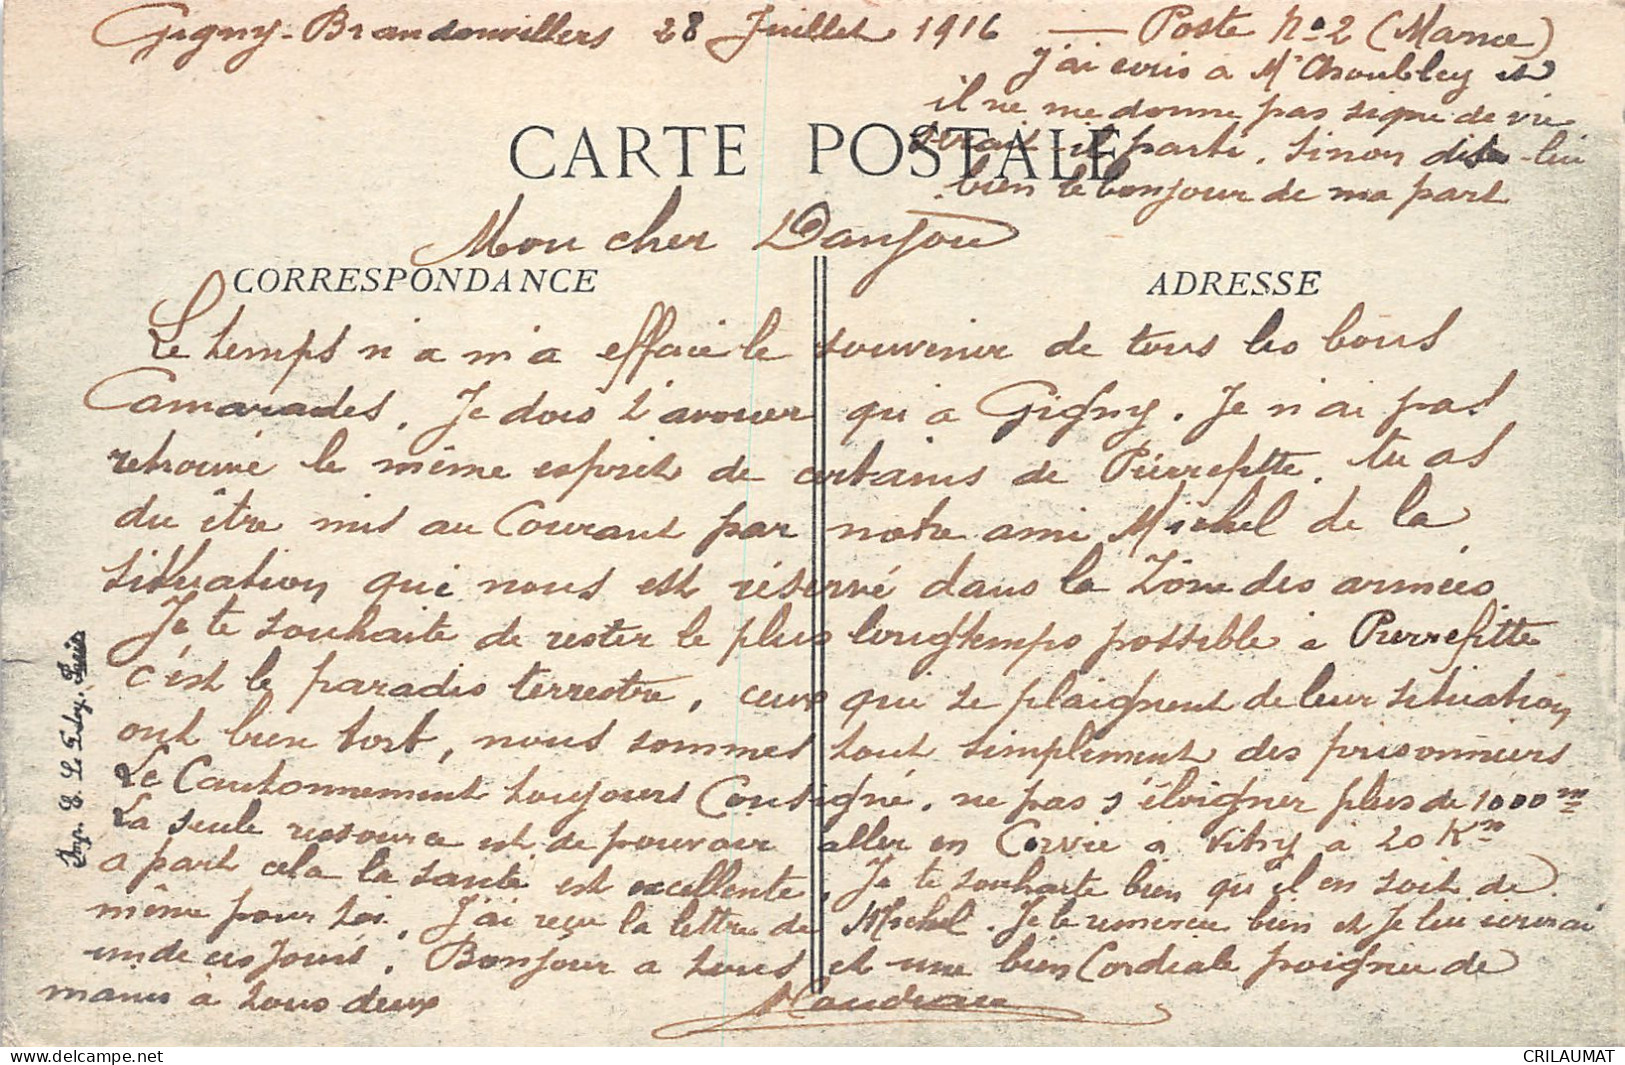 Gigny-Brandonvillers 28 Juillet 1916 — Poste No 2 (Marne)
J'ai ecris a Mr Choubley et
il ne me donne pas signe de vie
serait-il parti. Sinon dites-lui
bien le bonjour de ma part
CARTE POSTALE
Mon cher Danjou
CORRESPONDANCE
ADRESSE
Le temps n'a m'a effacé le souvenir de tous les bons
Camarades. Je dois t'avouer qu'a Gigny. Je n'ai pas
retrouvé le même esprit de certains de Pierrefitte. tu as
du être mis au Courant par notre ami Michel de la
situation qui nous est réservé dans la Zône des armées
Je te souhaite de rester le plus longtemps possible a Pierrefitte
c'est le paradis terrestre, ceux qui se plaignent de leur situation
ont bien tort, nous sommes tout simplement des prisonniers
Le Cantonnement toujours Consigné. ne pas s'éloigner plus de 1000 m
La seule ressource est de pouvoir aller en Corvée a Vitry à 20 Km
a part cela la santé est excellente, Je te souhaite bien qu'il en soit de
même pour toi. J'ai reçu la lettre de Michel. Je le remercie bien et Je lui ecrirai
un de ces Jours. Bonjour a tous et une bien Cordiale poignée de
mains à tous deux
Imp. E. Le Deley, Paris